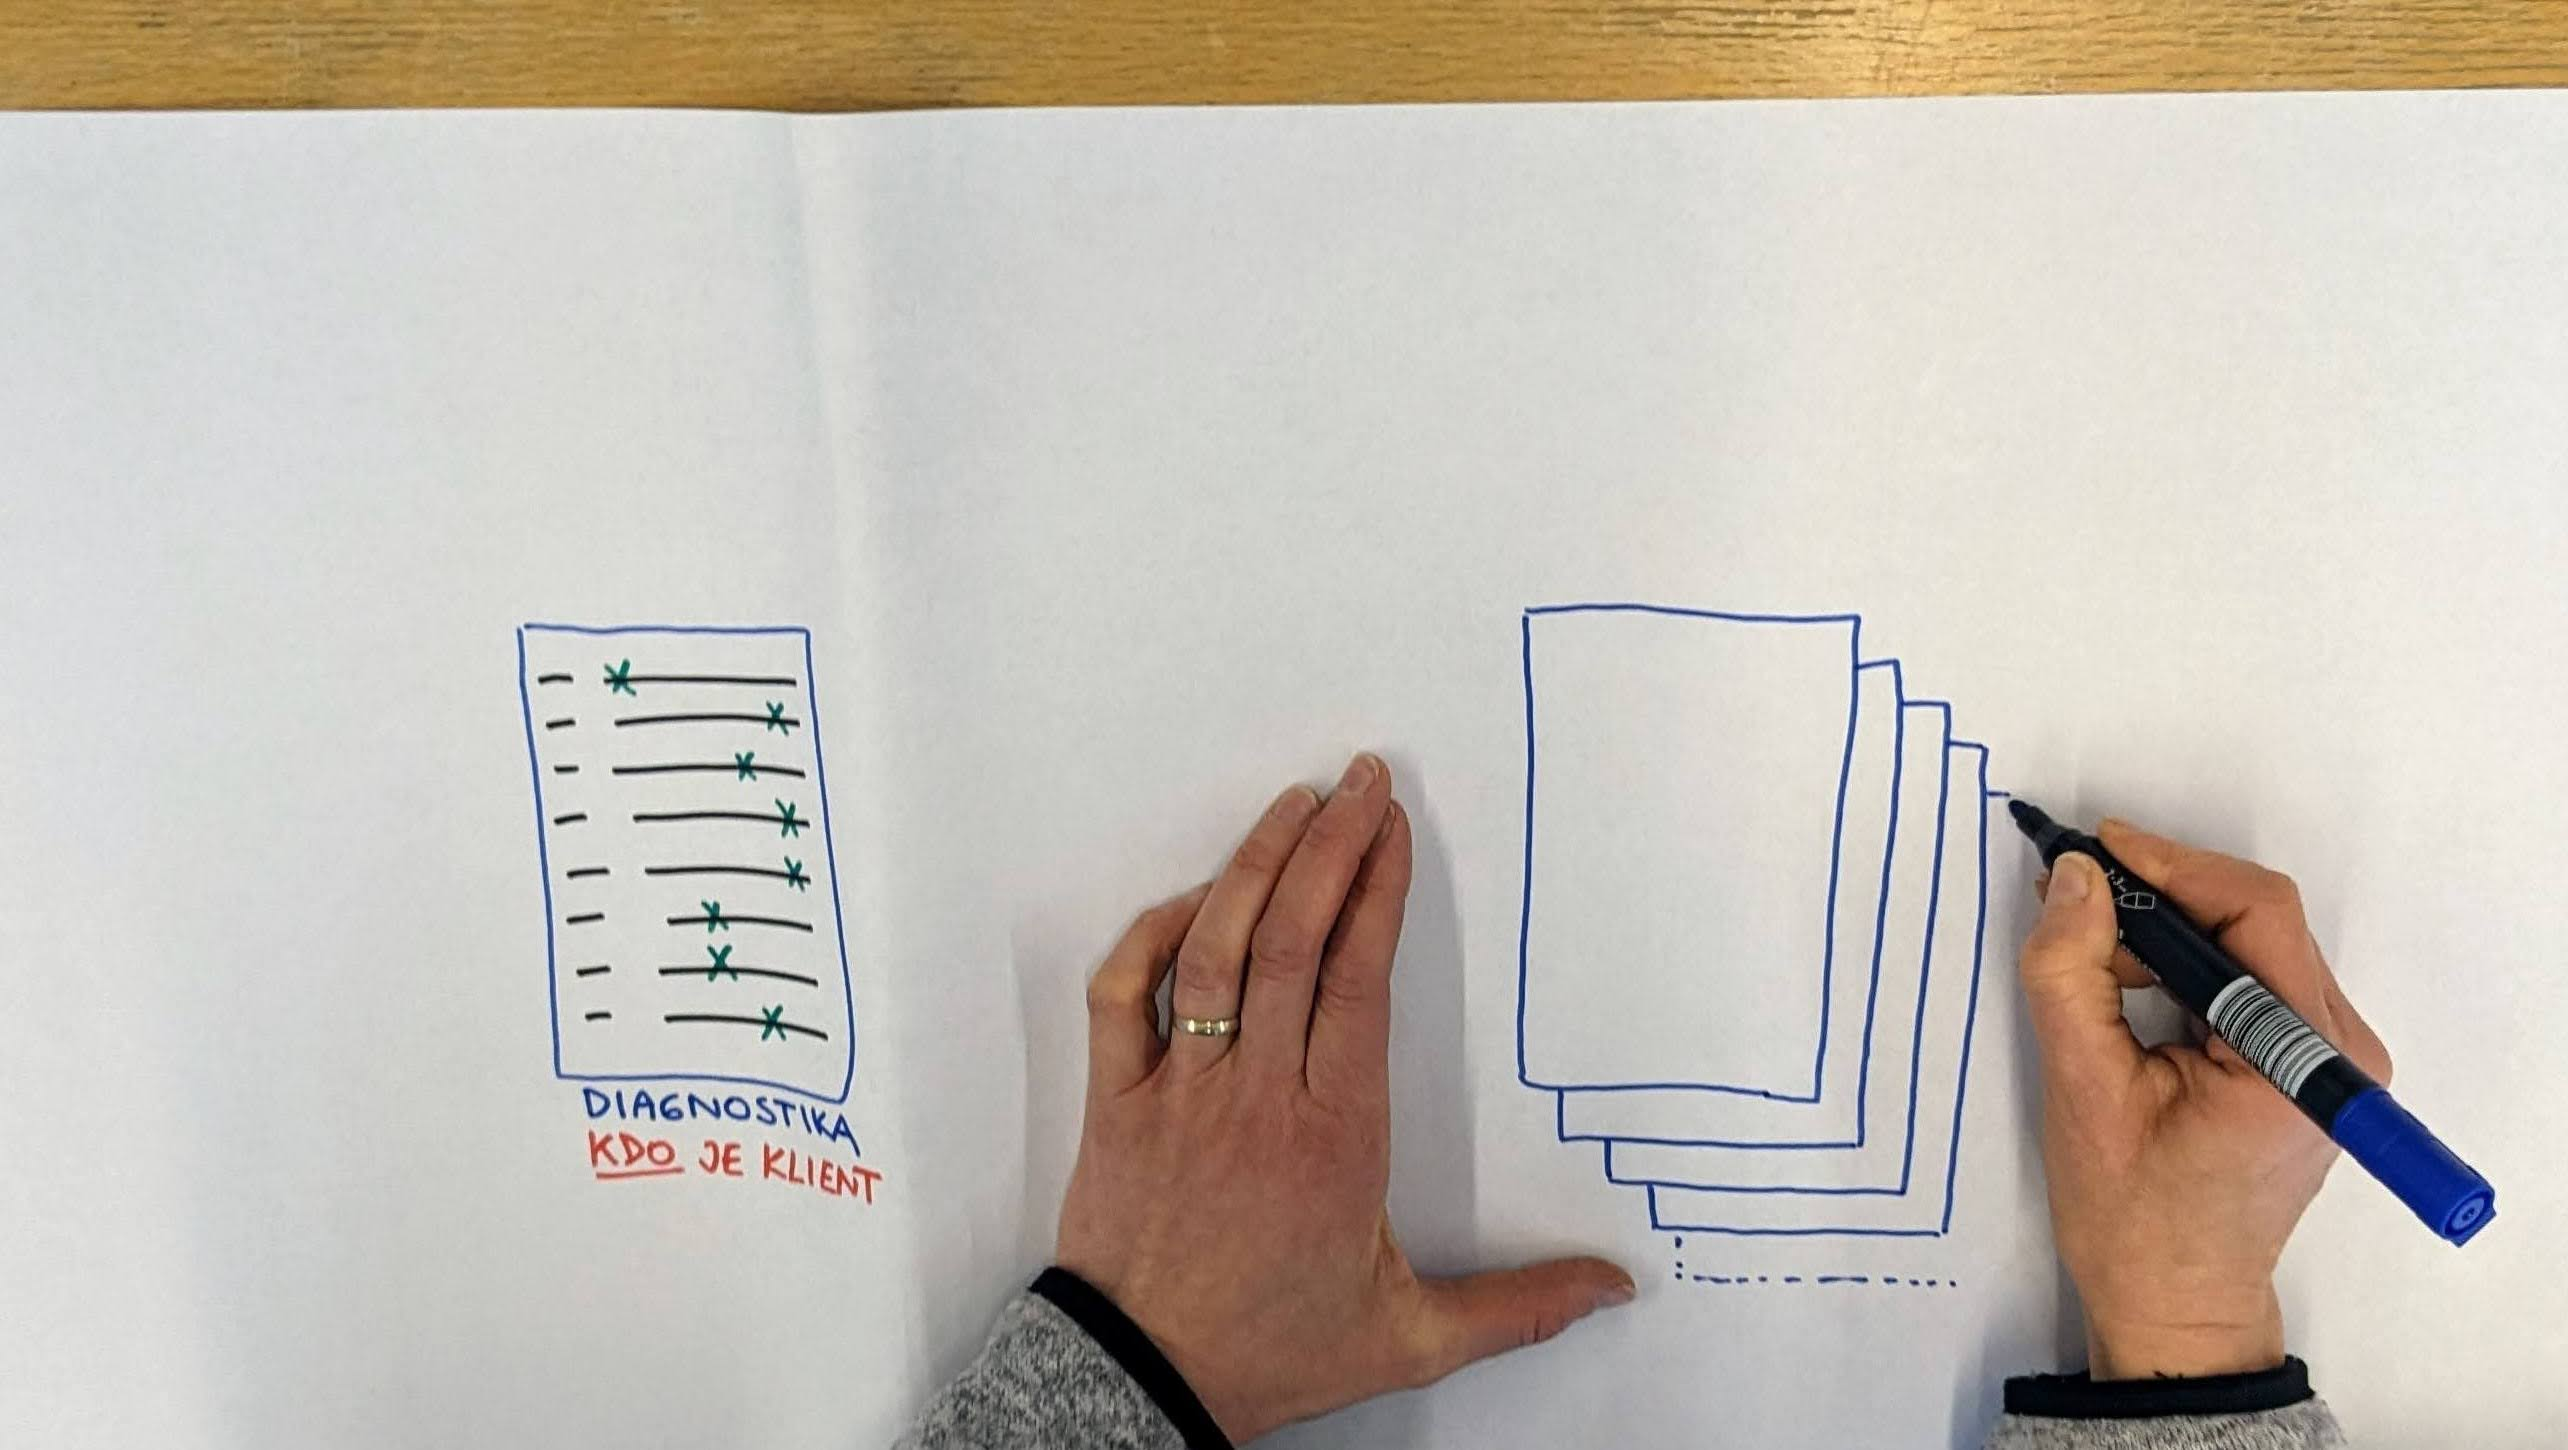 DIAGNOSTIKA
KDO JE KLIENT